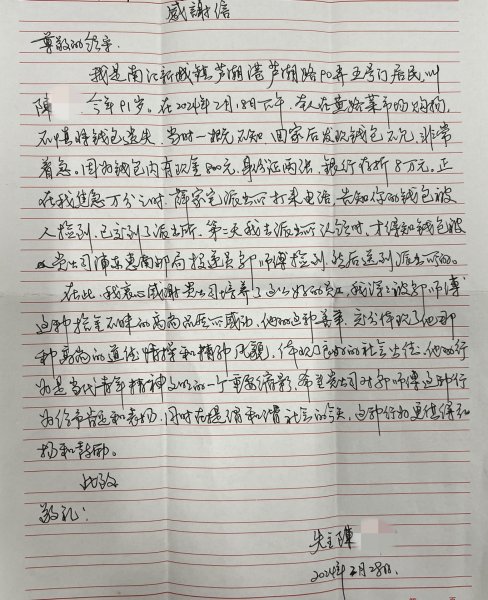 感謝信
尊敬的领导.
我是南汇新城镇芦潮港芦潮路70弄五号门居民,叫
陳 今年91岁。在2024年2月18日下午,本人在黄路菜市场购物,
不慎将钱包遗失,当时一概不知,回家后发现钱包不见,非常
着急。因为钱包内有现金800元,身份证两张,银行存折8万元。正
在我焦急万分之时,薛家宅派出所打来电话,告知你的钱包被
人捡到,已交到了派出所。第二天我去派出所认领时,才得知钱包被
贵公司浦东惠南邮局投递员郭师傅捡到,然后送到派出所的。
在此,我衷心感谢贵公司培养了这么好的员工,我深深被郭师傅
这种拾金不昧的高尚品质所感动,他的这种善举,充分体现了他那
种高尚的道德情操和精神风貌,体现了良好的社会公德。他的行
为是当代青年精神文明的一个重要缩影,希望贵公司对郭师傅这种行
为给予肯定和表扬,同时在提倡和谐社会的今天,这种行为更值得
扬和鼓励。
此致
敬礼!
先生陳
2024年2月28日.